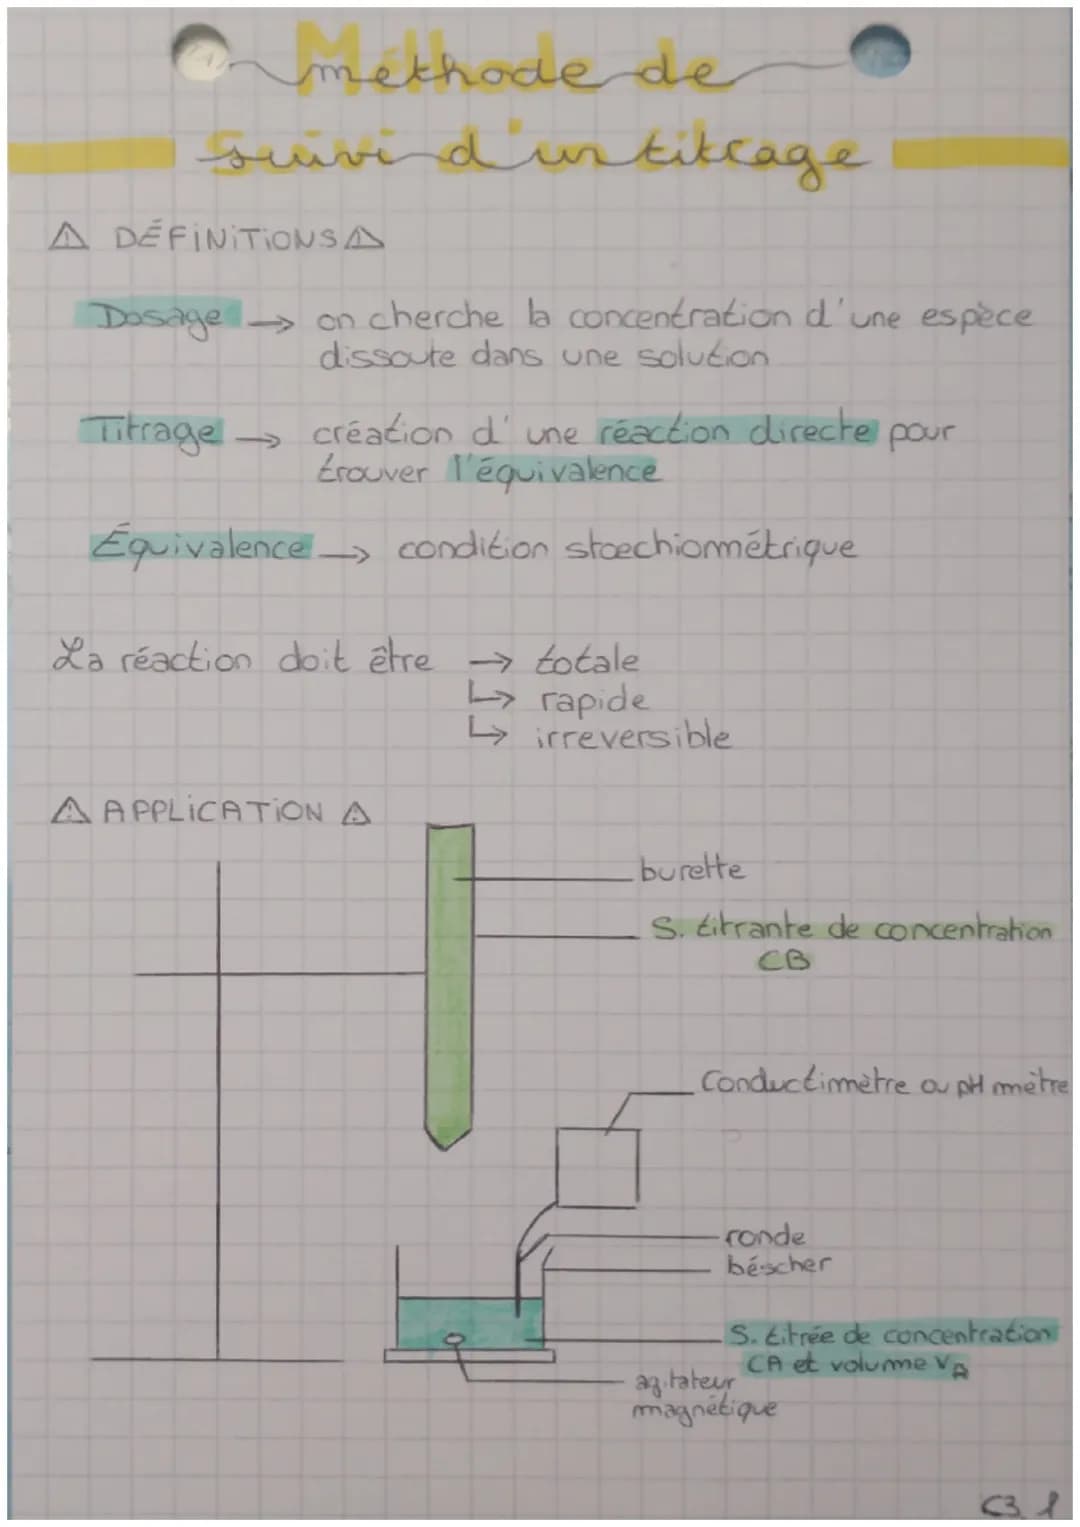 Méthode de
suivi d'un titrage
⚠ DÉFINITIONS ⚠
Dosage → on cherche la concentration d'une espèce
dissoute dans une solution
Titrage → création d'une réaction directe pour
trouver l'équivalence
Équivalence → condition stoechiommétrique
La réaction doit être → totale
↳ rapide
↳ irreversible
⚠ APPLICATION ⚠
burette
S. titrante de concentration
CB
Conductimètre ou pH mètre
ronde
béscher
S. titrée de concentration
CA et volume VA
agitateur
magnétique
C3 1